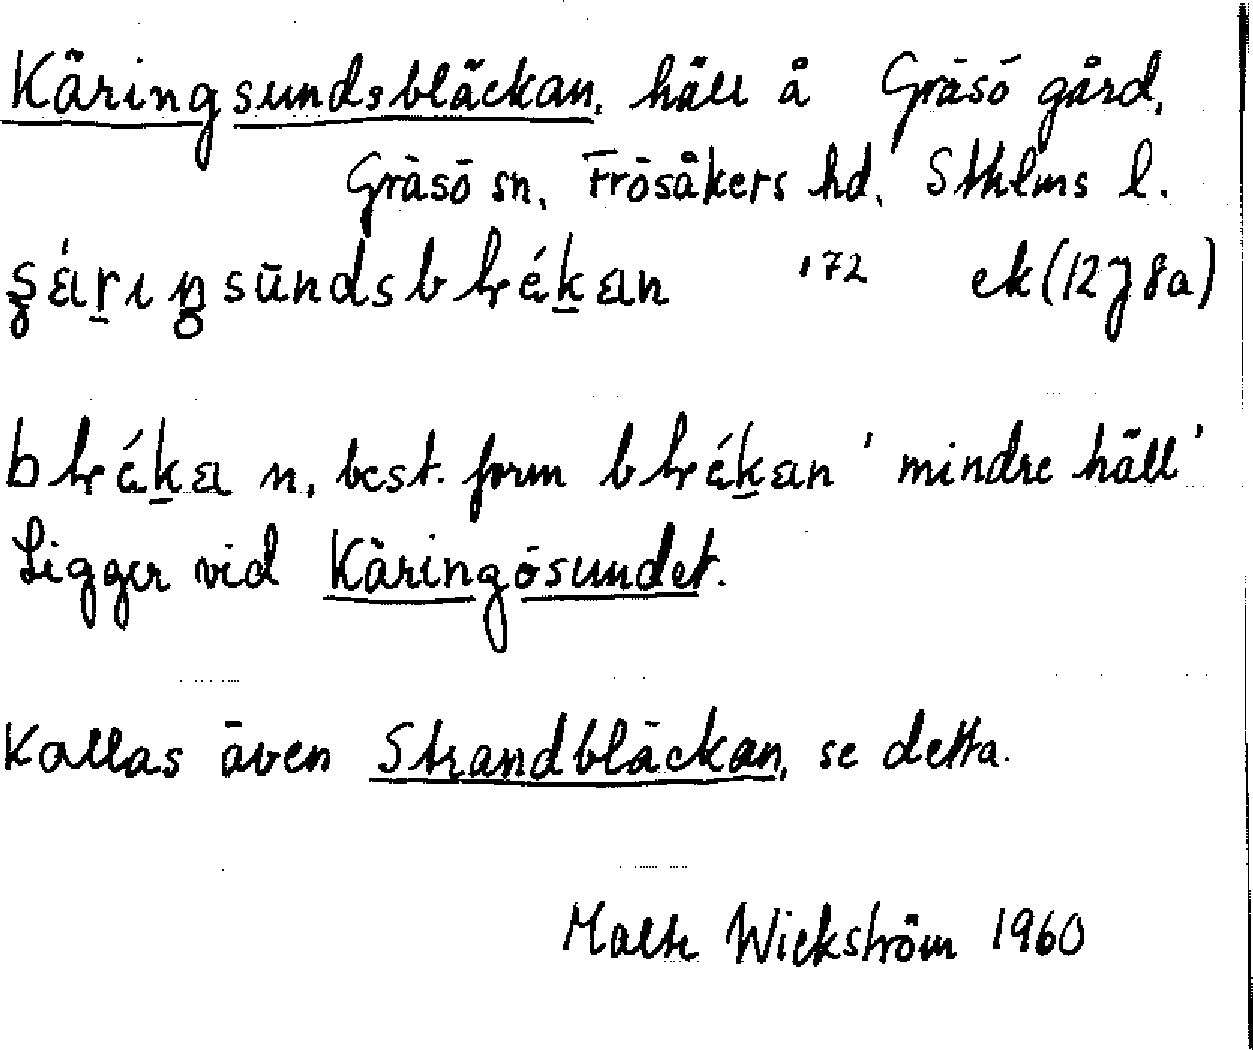 Käringsundsbläckan, häll å Gräsö gård,
Gräsö sn, Frösåkers hd, Sthlms l.
'72 ek (12J8a)
n, best. form 'mindre häll'
Ligger vid Käringösundet.
Kallas även Strandbläckan, se detta.
Malte Wickström 1960